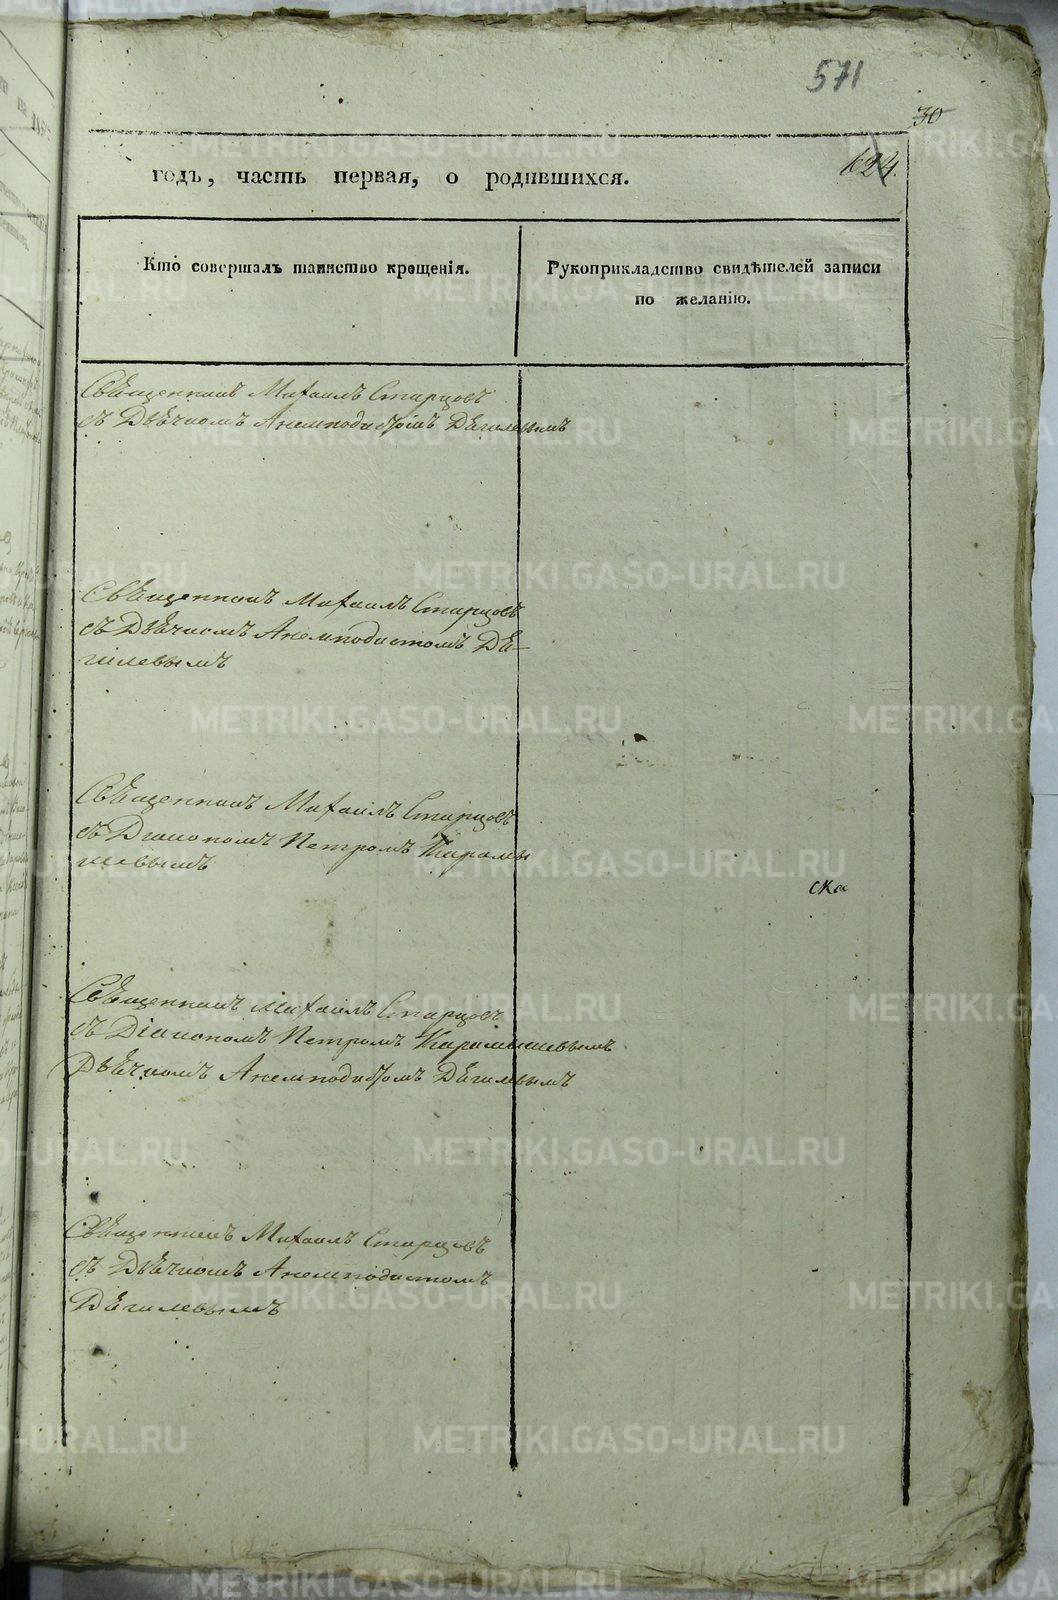 571
30
624.
годъ, часть первая, о родившихся.
Кто совершалъ таинство крещенія.
Рукоприкладство свидѣтелей записи
по желанію.
Священникъ Михаилъ Старцовъ
съ Дьячкомъ Анемподистомъ Дѣгилевымъ
Священникъ Михаилъ Старцовъ
съ Дьячкомъ Анемподистомъ Дѣ-
гилевымъ
Священникъ Михаилъ Старцовъ
съ Діакономъ Петромъ Карамы
шевымъ
ска
Священникъ Михаилъ Старцовъ
съ Діакономъ Петромъ Карамышевымъ
Дьячкомъ Анемподистомъ Дѣгилевымъ
Священникъ Михаилъ Старцовъ
съ Дьячкомъ Анемподистомъ
Дѣгилевымъ
METRIKI.GASO-URAL.RU